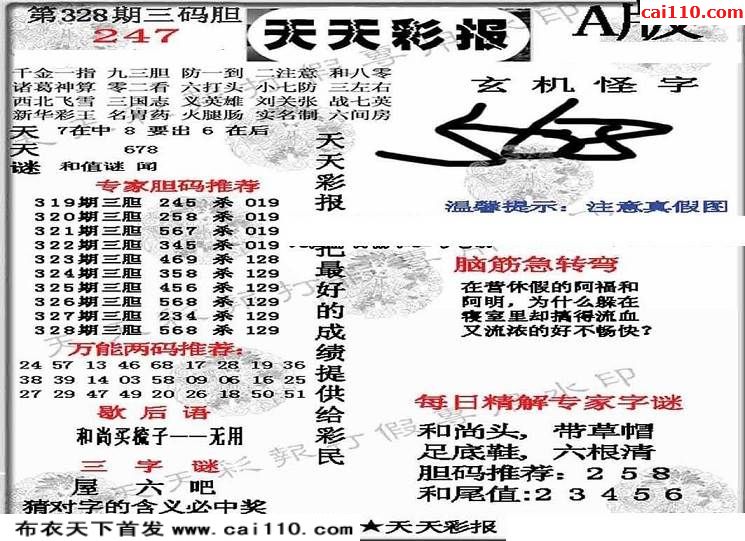 第328期三码胆
247
天天彩报
A版
cai110.com
千金一指 九三胆 防一到 二注意 和八零
诸葛神算 零二看 六打头 小七防 三左右
西北飞雪 三国志 义英雄 刘关张 战七英
新华彩王 名胃药 火腿肠 实名制 六间房
天 7在中 8 要出 6 在后
天 678
谜 和值谜 闻
玄机怪字
温馨提示: 注意真假图
专家胆码推荐
319期三胆 245 杀 019
320期三胆 258 杀 019
321期三胆 567 杀 019
322期三胆 345 杀 019
323期三胆 469 杀 128
324期三胆 358 杀 129
325期三胆 456 杀 129
326期三胆 568 杀 129
327期三胆 234 杀 129
328期三胆 568 杀 129
万能两码推荐:
24 57 13 46 68 17 28 19 36
38 39 14 03 58 09 06 16 25
27 29 47 49 20 26 18 50 51
歇后语
和尚买梳子——无用
三字谜
屋 六 吧
猜对字的含义必中奖
天天彩报
把最好的成绩提供给彩民
脑筋急转弯
在营休假的阿福和
阿明，为什么躲在
寝室里却搞得流血
又流浓的好不畅快?
每日精解专家字谜
和尚头，带草帽
足底鞋，六根清
胆码推荐: 2 5 8
和尾值: 2 3 4 5 6
cai110.com
布衣天下首发 www.cai110.com
★天天彩报